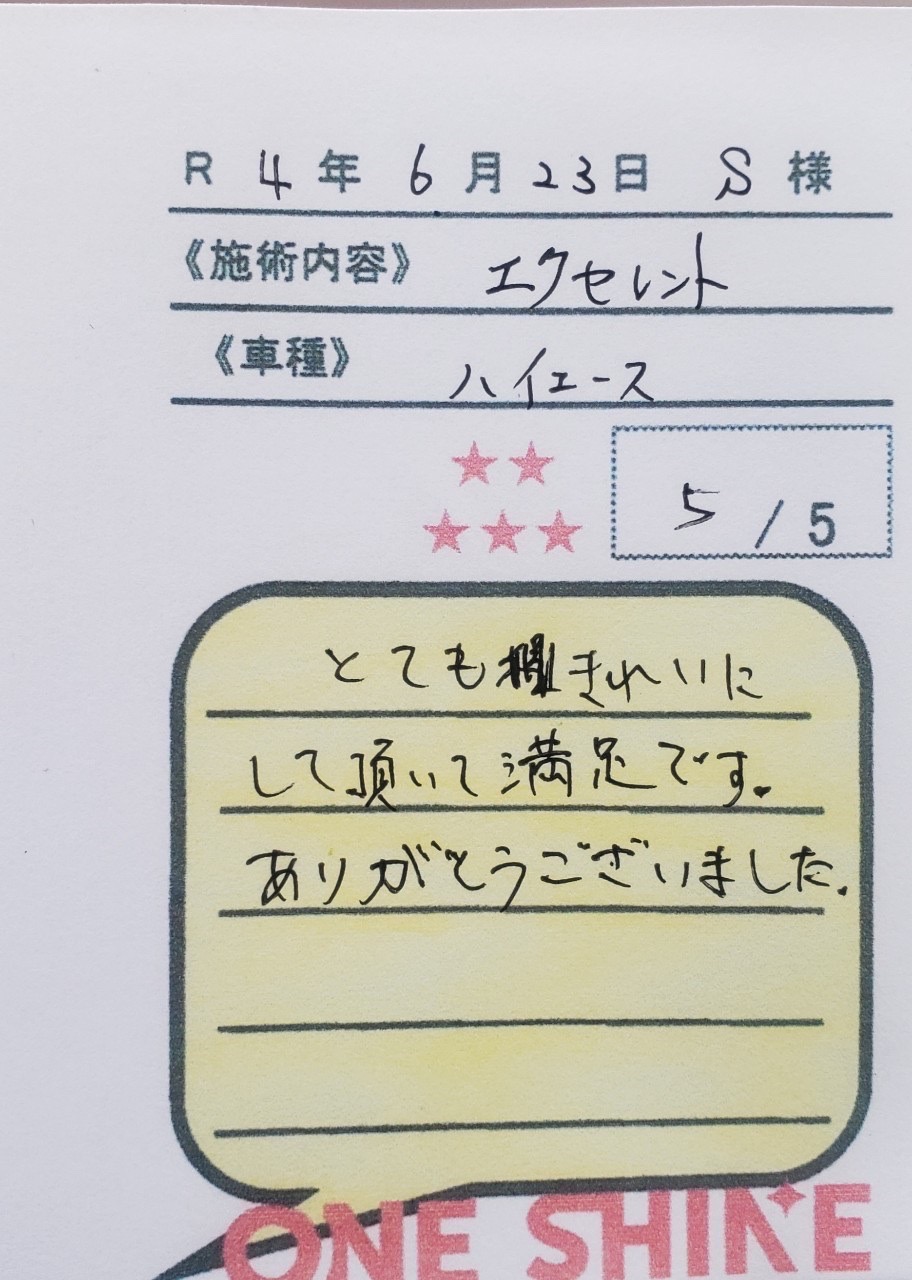 R 4年 6月 23日 S 様
《施術内容》 エクセレント
《車種》 ハイエース
5 / 5
とてもきれいに
して頂いて満足です。
ありがとうございました.
ONE SHINE